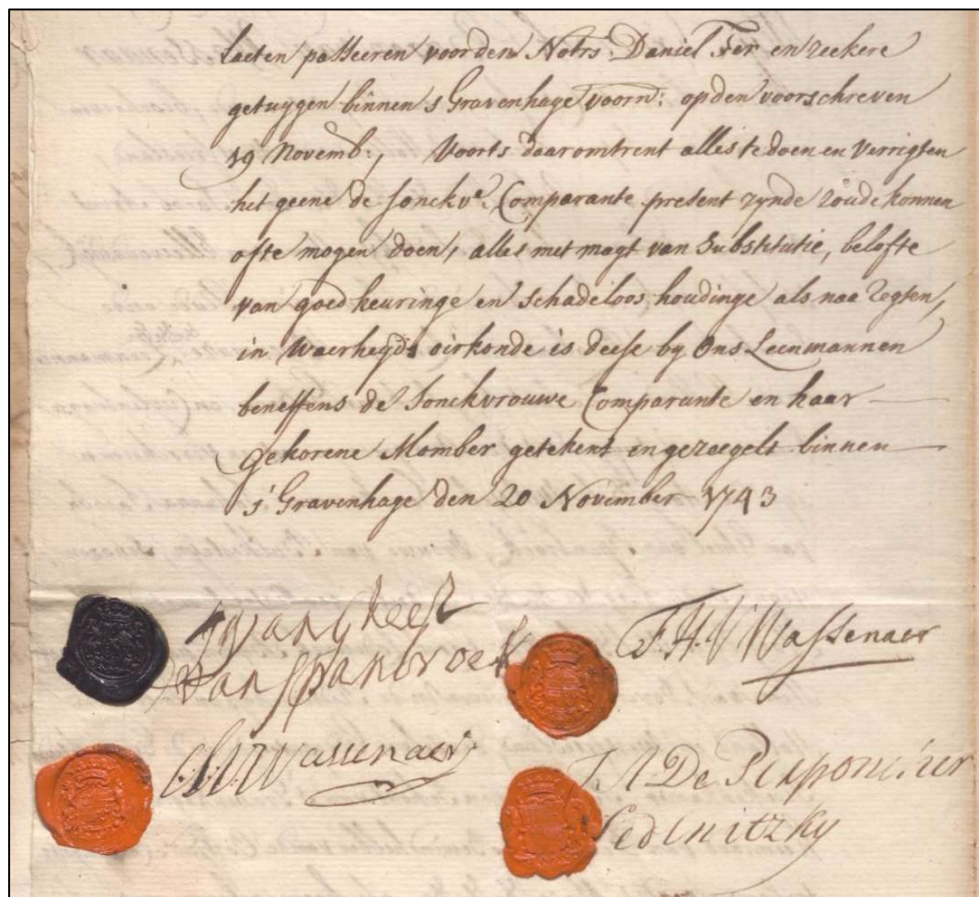 Laeten passeeren voor den Notrs. Daniel Fer en zeekere
getuygen binnen s Gravenhage voorn: op den voorschreven
19 Novemb, Voorts daaromtrent alles te doen en Verrigten
het geene de Jonckve. Comparante present zynde zoude konnen
ofte mogen doen, alles met magt van Substitutie, belofte
van goedkeuringe en Schadeloos houdinge als naa Regten,
in Waerheyds oirkonde is deese by Ons Leenmannen
beneffens de Jonckvrouwe Comparante en haar
gekorene Momber getekent en gezeegelt binnen
s' Gravenhage den 20 November 1743
van Gheel
van Spanbroek
F. H. V Wassenaer
Wassenaer
De Perponcher
Sedlnitzky